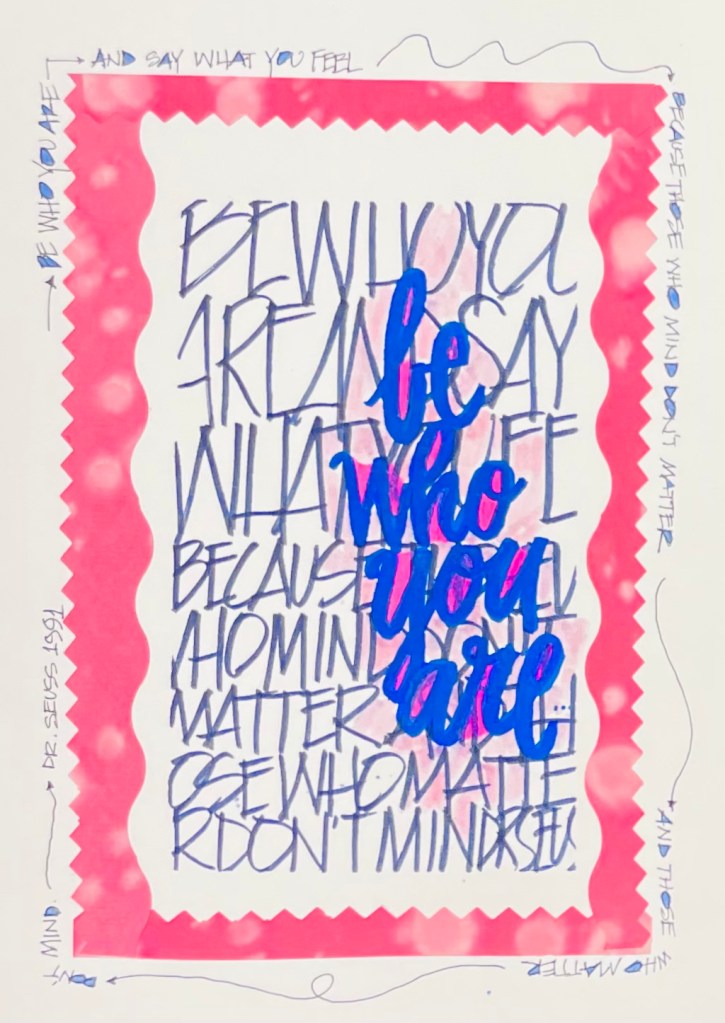 BE WHO YOU ARE
AND SAY WHAT YOU FEEL
BECAUSE THOSE WHO MIND DON'T MATTER
AND THOSE
WHO MATTER
DON'T
MIND.
DR. SEUSS 1991
BEWHOYOU
AREANDSAY
WHATYOUFEE
BECAUSE
HOMIND DON'T
MATTER
OSEWHOMATTE
RDON'TMINDRSEU
be
who
you
are